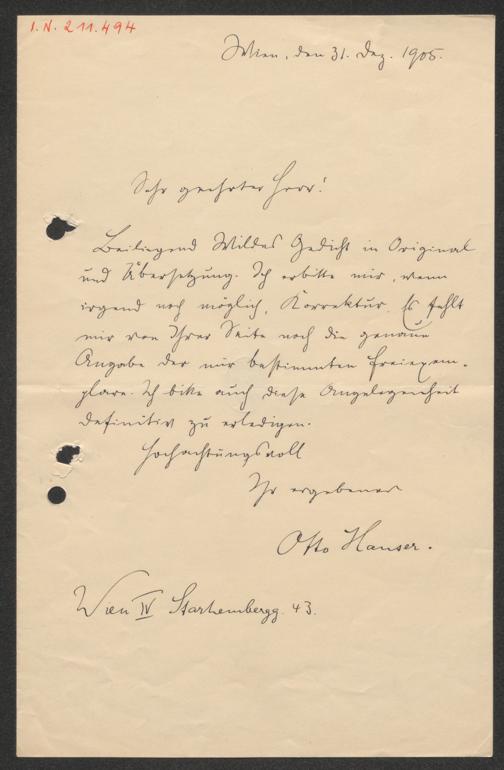 I.N. 211.494
Wien, den 31. Dez. 1905.
Sehr geehrter Herr!
Beiliegend Wildes Gedicht in Original
und Übersetzung. Ich erbitte mir, wenn
irgend noch möglich, Korrektur. Es fehlt
mir von Ihrer Seite noch die genaue
Angabe der mir bestimmten Freiexem-
plare. Ich bitte auch diese Angelegenheit
definitiv zu erledigen.
Hochachtungsvoll
Ihr ergebener
Otto Hauser.
Wien IV Starhembergg. 43.